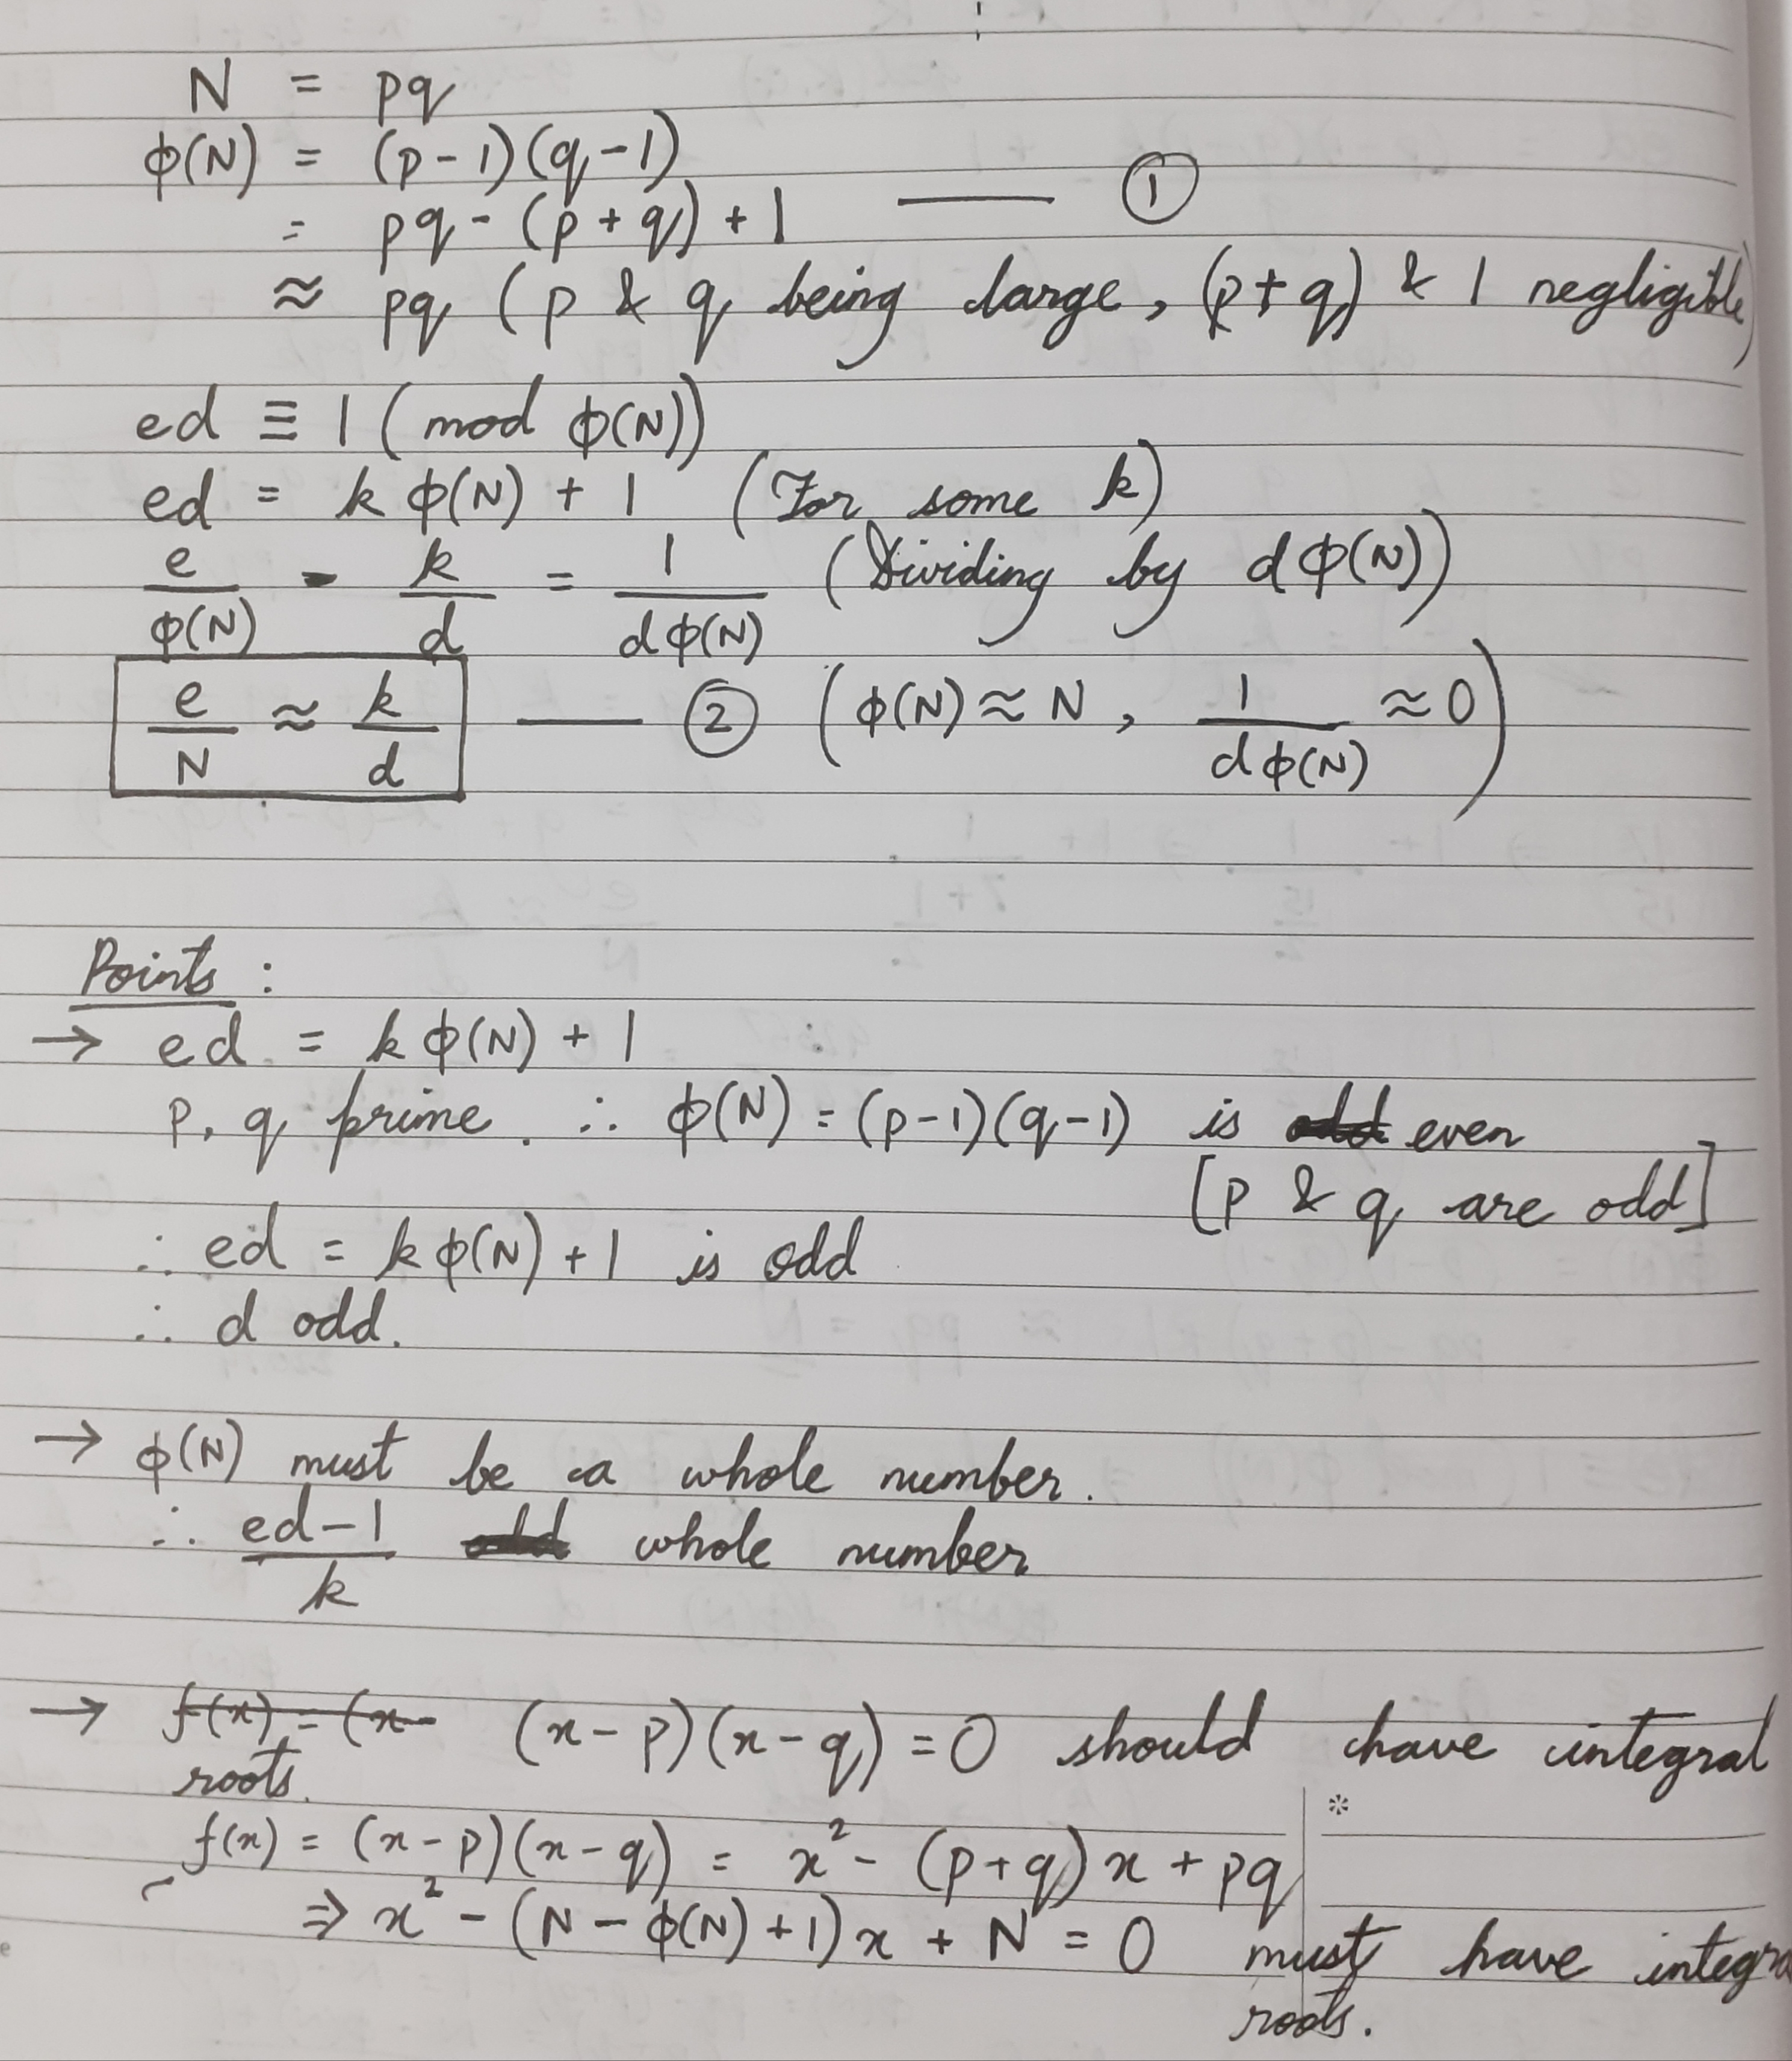 N = pq
ϕ(N) = (p-1)(q-1)
= pq - (p+q) + 1 —— ①
≈ pq (p & q being large, (p+q) & 1 negligible)
ed ≡ 1 (mod ϕ(N))
ed = k ϕ(N) + 1 (For some k)
e/ϕ(N) - k/d = 1/dϕ(N) (Dividing by dϕ(N))
e/N ≈ k/d —— ② (ϕ(N) ≈ N, 1/dϕ(N) ≈ 0)
Points :
→ ed = k ϕ(N) + 1
p, q prime. ∴ ϕ(N) = (p-1)(q-1) is odd even
[p & q are odd]
∴ ed = kϕ(N) + 1 is odd
∴ d odd.
→ ϕ(N) must be a whole number.
∴ ed-1/k odd whole number
→ f(x) = (x- (x-p)(x-q) = 0 should have integral
roots.
*
f(x) = (x-p)(x-q) = x² - (p+q)x + pq
⇒ x² - (N - ϕ(N) + 1)x + N = 0 must have integra
roots.